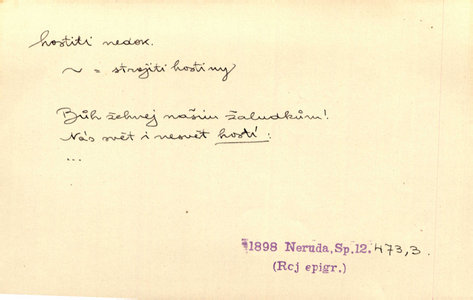 hostiti nedok.
~ = strojiti hostiny
Bůh žehnej našim žaludkům!
Nás svět i nesvět hostí:
...
1898 Neruda, Sp.12. 473,3.
(Rcj epigr.)